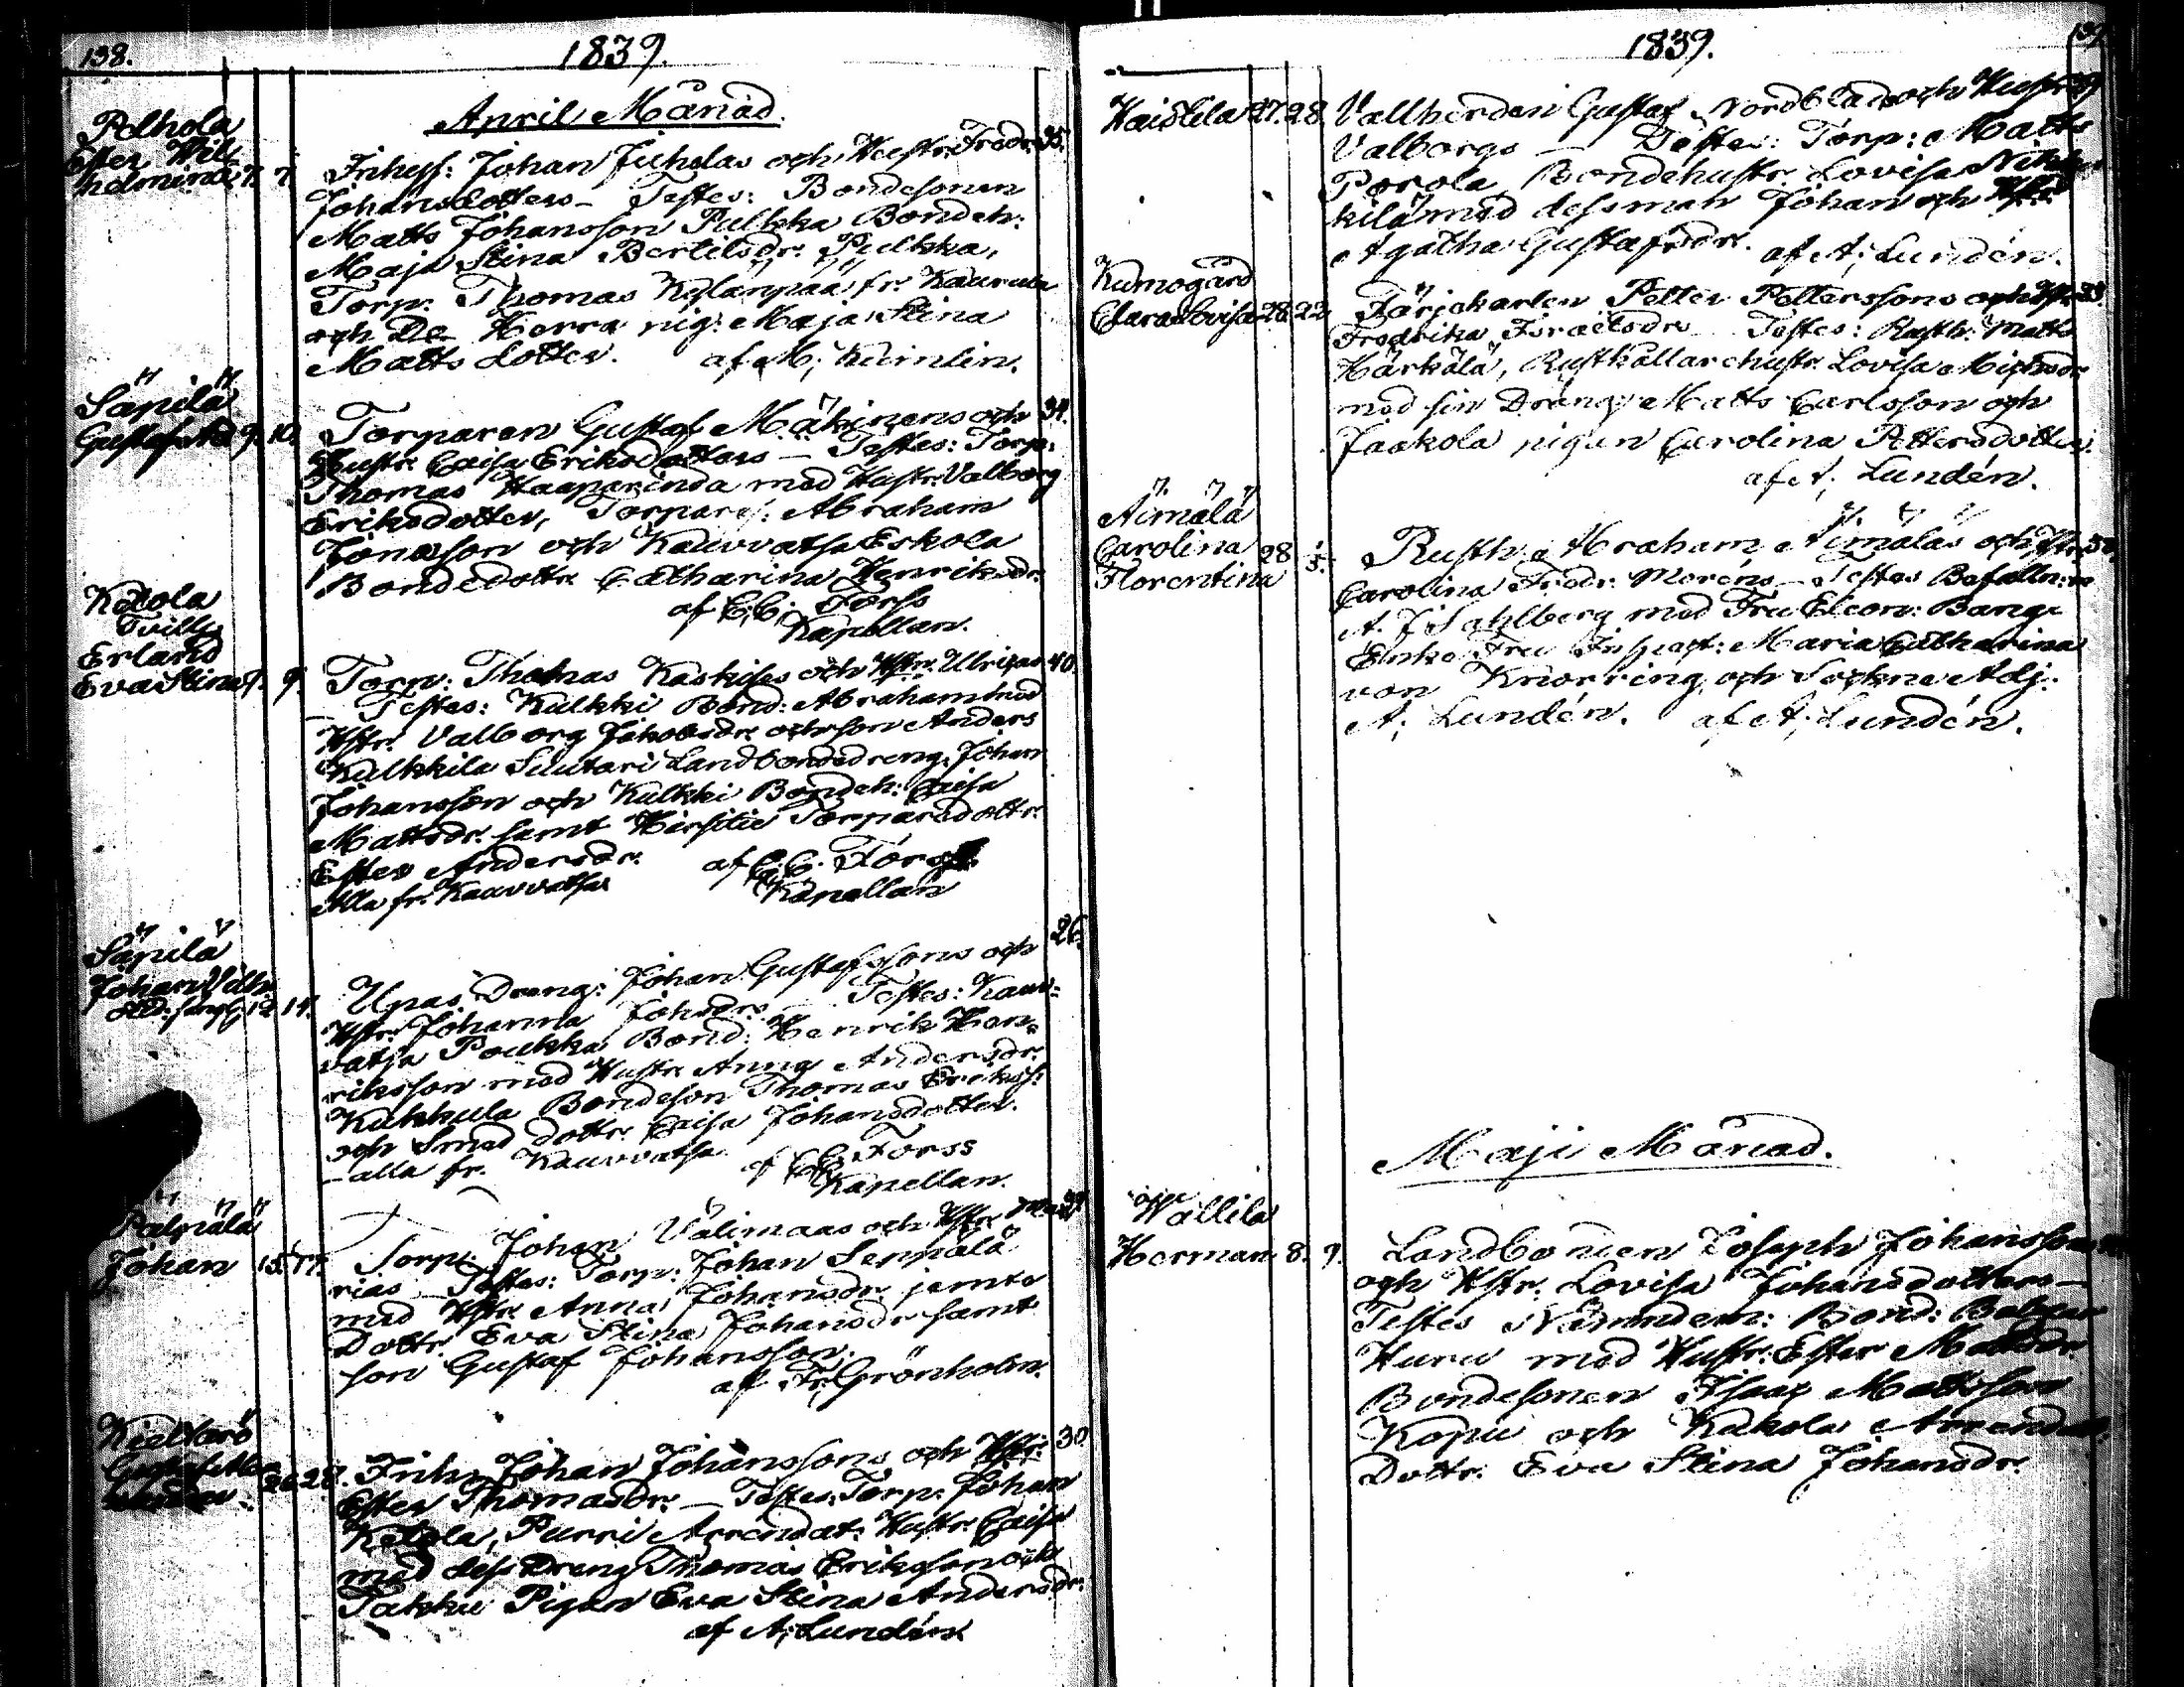 138.
1839.
April Månad.
Pelhola
Ester Wil
helmina 7. 7.
Inhyss: Johan Juholas och Hustr. Fredr. 35.
Johansdotters – Testes: Bondesonen
Matts Johansson Pulkka Bondeh:
Maja Stina Bertilsdr. Pulkka,
Torp. Thomas Kylänpää fr. Kaurula
och De Herra pig: Maja Stina
Matts dotter. af M; Kumlin.
Säpilä
Gustaf 9. 10.
Torparen Gustaf Mäkinens och 34.
Hustr. Caisa Eriksdotters – Testes: Torp:
Thomas Haaparinda med Hustr. Valborg
Eriksdotter, Torpares: Abraham
Jonasson och Kauvvatsa Eskola
Bondedottr. Catharina Henriksdr.
af C; C; Forss
Kapellan.
Ketola
Tvill
Erland
Eva Stina 9. 9.
Torp: Thomas Kaskis och Hstr. Ulricas 40.
– Testes: Kulkki Bond: Abraham med
Hstr. Valborg Jakobsdr. och son Anders
Kulkkila Suutari Landbondedreng. Johan
Johansson och Kulkki Bondeh: Caisa
Mattsdr. samt Hirsitie Torparedottr.
Ester Andersdr. af C; C. Forss
Alla fr. Kauvvatsa Kapellan
Säpilä
Johan Vilh.
12 14.
26.
Upas Dreng: Johan Gustafssons och
Hstr. Johanna Johsdrs. – Testes: Kauv-
vatsa Poukka Bond: Henrik Hen-
riksson med Hustr. Anna Andersdr.
Kukkula Bondeson Thomas Erikss:
och Smed dottr. Caisa Johansdotter.
– alla fr. Kauvvatsa af C; C; Forss
Kapellan.
Pälpälä
Johan 15. 17.
Torp. Johan Välimaas och Hstr. Ma-
rias – Testes: Torp: Johan Seppälä
med Hstr. Anna Johansdr. jemte
Dottr. Eva Stina Johansdr. samt
son Gustaf Johansson.
af Fr; Grönholm.
26 28.
Inhys Johan Johanssons och Hstr. 30
Ester Thomasdr. – Testes: Torp: Johan
Ketola, Purri Arrendat: Hustr. Caisa
med dess Dreng Thomas Eriksson och
Takku Pigan Eva Stina Andersdr.
af A; Lundén.
1839.
139.
Haistila 27. 28.
Vallherden Gustaf Nordblads och Hustr.
Valborgs – Testes: Torp: Matts
Porola, Bondehustr. Lovisa Nik
kilä med dess man Johan och Hstr.
Agatha Gustafsdr. af A; Lundén.
Kumogård
Clara Lovisa 28
Färjekarlen Petter Petterssons och Hstr.
Fredrika Israelsdrs. Testes: Rusth: Matts
Härkälä, Rusthållarehustr. Lovisa Michsdr.
med sin Dräng: Matts Carlsson och
Jaakola pigan Carolina Pettersdotter.
af A; Lundén.
Äimälä
Carolina
Florentina 28
Rusth: Abraham Äimäläs och Hstr.
Carolina Fredr. Moréns – Testes Befalln:
A. J Sahlberg med Fru Eleon: Bange
Enke Fru Inspect: Maria Catharina
von Knorring och Sockne Adj:
A; Lundén. af A; Lundén.
Maji Månad.
Wällilä
Herman 8. 9.
Landbonden Joseph Johanssons
och Hstr. Lovisa Johansdotters –
Testes Nämndem: Bond:
Huru med Hustr: Ester Mattsdr.
Bondesonen Isaac Mattsson
Kopu och Kakola Arrendat:
Dottr. Eva Stina Johansdr.